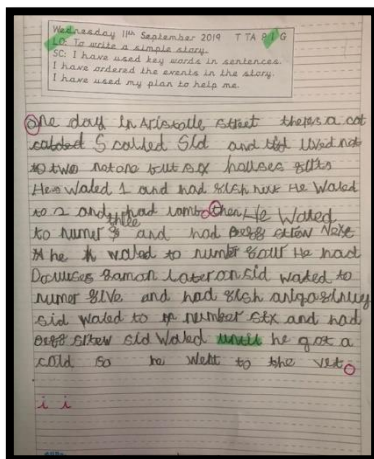 Wednesday 11th September 2019 T TA P I G
LO: To write a simple story.
SC: I have used key words in sentences.
I have ordered the events in the story.
I have used my plan to help me.
One day in Aristotle street theres a cat
called Sid and Sid lived not
to two not one but six houses
He waled 1 and had fish next He waled
to 2 and had lamb. Then He Waled
to numer three and had beef stew Next
he waled to number four He had
saman Later on sid waled to
numer five and had fish
sid waled to number six and had
stew sid Waled until he got a
cold so he went to the vet.
i i